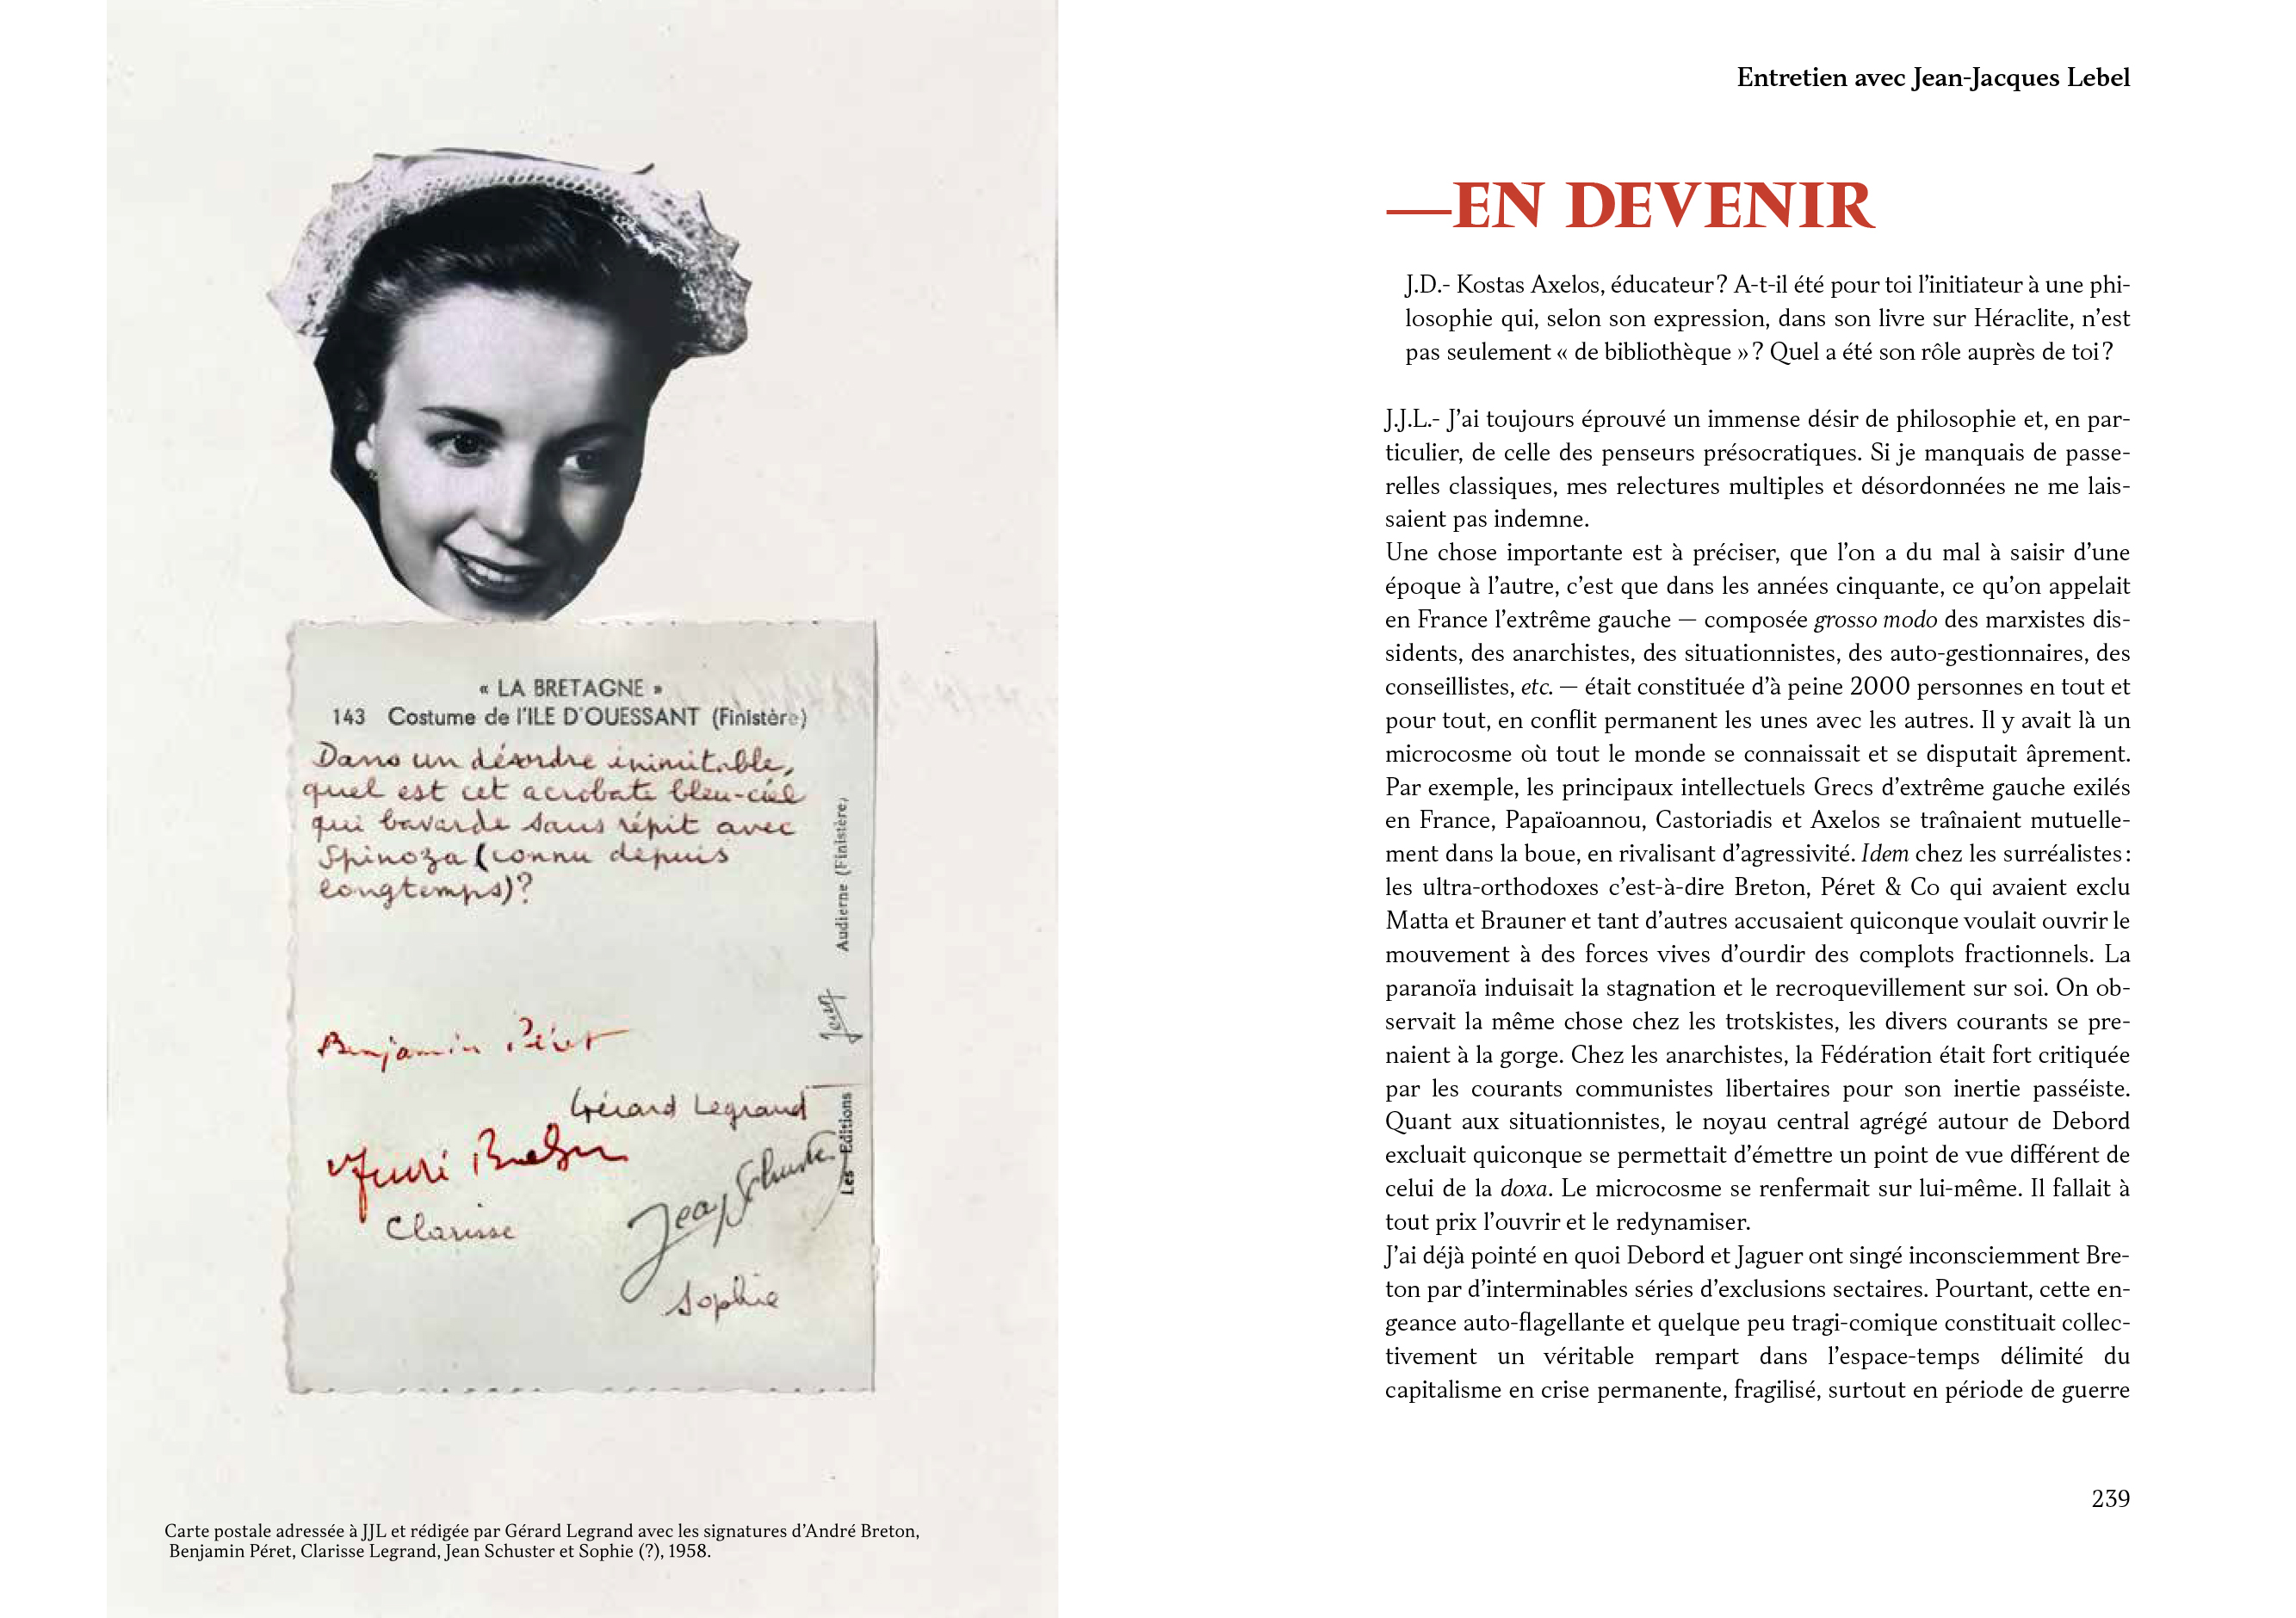 « LA BRETAGNE »
143 Costume de l'ILE D'OUESSANT (Finistère)
Dans un désordre inimitable,
quel est cet acrobate bleu-ciel
qui bavarde sans répit avec
Spinoza (connu depuis
longtemps)?
Benjamin Péret
Gérard Legrand
André Breton
Clarisse
Jean Schuster
Sophie
Les Editions
Audierne (Finistère)
Carte postale adressée à JJL et rédigée par Gérard Legrand avec les signatures d'André Breton,
Benjamin Péret, Clarisse Legrand, Jean Schuster et Sophie (?), 1958.
Entretien avec Jean-Jacques Lebel
—EN DEVENIR
J.D.- Kostas Axelos, éducateur ? A-t-il été pour toi l'initiateur à une phi-
losophie qui, selon son expression, dans son livre sur Héraclite, n'est
pas seulement « de bibliothèque » ? Quel a été son rôle auprès de toi ?
J.J.L.- J'ai toujours éprouvé un immense désir de philosophie et, en par-
ticulier, de celle des penseurs présocratiques. Si je manquais de passe-
relles classiques, mes relectures multiples et désordonnées ne me lais-
saient pas indemne.
Une chose importante est à préciser, que l'on a du mal à saisir d'une
époque à l'autre, c'est que dans les années cinquante, ce qu'on appelait
en France l'extrême gauche — composée grosso modo des marxistes dis-
sidents, des anarchistes, des situationnistes, des auto-gestionnaires, des
conseillistes, etc. — était constituée d'à peine 2000 personnes en tout et
pour tout, en conflit permanent les unes avec les autres. Il y avait là un
microcosme où tout le monde se connaissait et se disputait âprement.
Par exemple, les principaux intellectuels Grecs d'extrême gauche exilés
en France, Papaïoannou, Castoriadis et Axelos se traînaient mutuelle-
ment dans la boue, en rivalisant d'agressivité. Idem chez les surréalistes :
les ultra-orthodoxes c'est-à-dire Breton, Péret & Co qui avaient exclu
Matta et Brauner et tant d'autres accusaient quiconque voulait ouvrir le
mouvement à des forces vives d'ourdir des complots fractionnels. La
paranoïa induisait la stagnation et le recroquevillement sur soi. On ob-
servait la même chose chez les trotskistes, les divers courants se pre-
naient à la gorge. Chez les anarchistes, la Fédération était fort critiquée
par les courants communistes libertaires pour son inertie passéiste.
Quant aux situationnistes, le noyau central agrégé autour de Debord
excluait quiconque se permettait d'émettre un point de vue différent de
celui de la doxa. Le microcosme se renfermait sur lui-même. Il fallait à
tout prix l'ouvrir et le redynamiser.
J'ai déjà pointé en quoi Debord et Jaguer ont singé inconsciemment Bre-
ton par d'interminables séries d'exclusions sectaires. Pourtant, cette en-
geance auto-flagellante et quelque peu tragi-comique constituait collec-
tivement un véritable rempart dans l'espace-temps délimité du
capitalisme en crise permanente, fragilisé, surtout en période de guerre
239